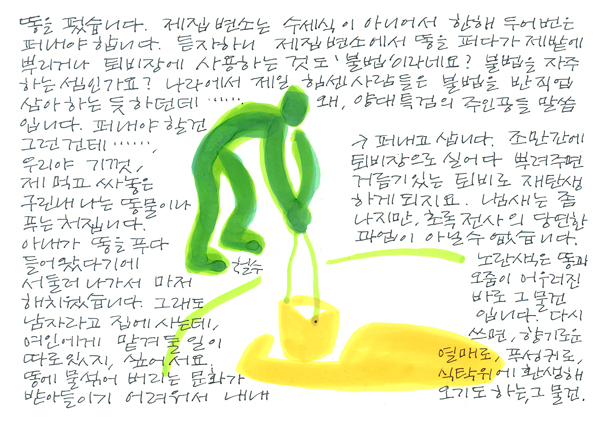 똥을 펐습니다. 제집 변소는 수세식이 아니어서 한해 두어번은
퍼내야 합니다. 듣자하니 제집변소에서 똥을 퍼다가 제밭에
뿌리거나 퇴비장에 사용하는 것도 '불법'이라네요? 불법을 자주
하는 셈인가요? 나라에서 제일 힘센 사람들은 불법을 반직업
삼아 하는 듯하던데 ...... 왜, 양대특검의 주인공들 말씀
입니다. 퍼내야 할건
그런건데 ......,
우리야 기껏,
제 먹고 싸놓은
구린내 나는 똥물이나
푸는 처집니다.
아내가 똥을 푸다
들어왔다기에
서둘러 나가서 마저
해치웠습니다. 그래도
남자라고 집에 사는데,
여인에게 맡겨 둘 일이
따로있지, 싶어서요.
똥에 물섞어 버리는 문화가
받아들이기 어려워서 내내
→ 퍼내고 삽니다. 조만간에
퇴비장으로 실어다 뿌려주면
거름기있는 퇴비로 재탄생
하게 되지요. 냄새는 좀
나지만, 초록전사의 당연한
과업이 아닐수 없습니다.
철수
노란색은 똥과
오줌이 어우러진
바로 그 물건
입니다. 다시
쓰면, 향기로운
열매로, 푸성귀로,
식탁위에 환생해
오기도 하는, 그 물건.